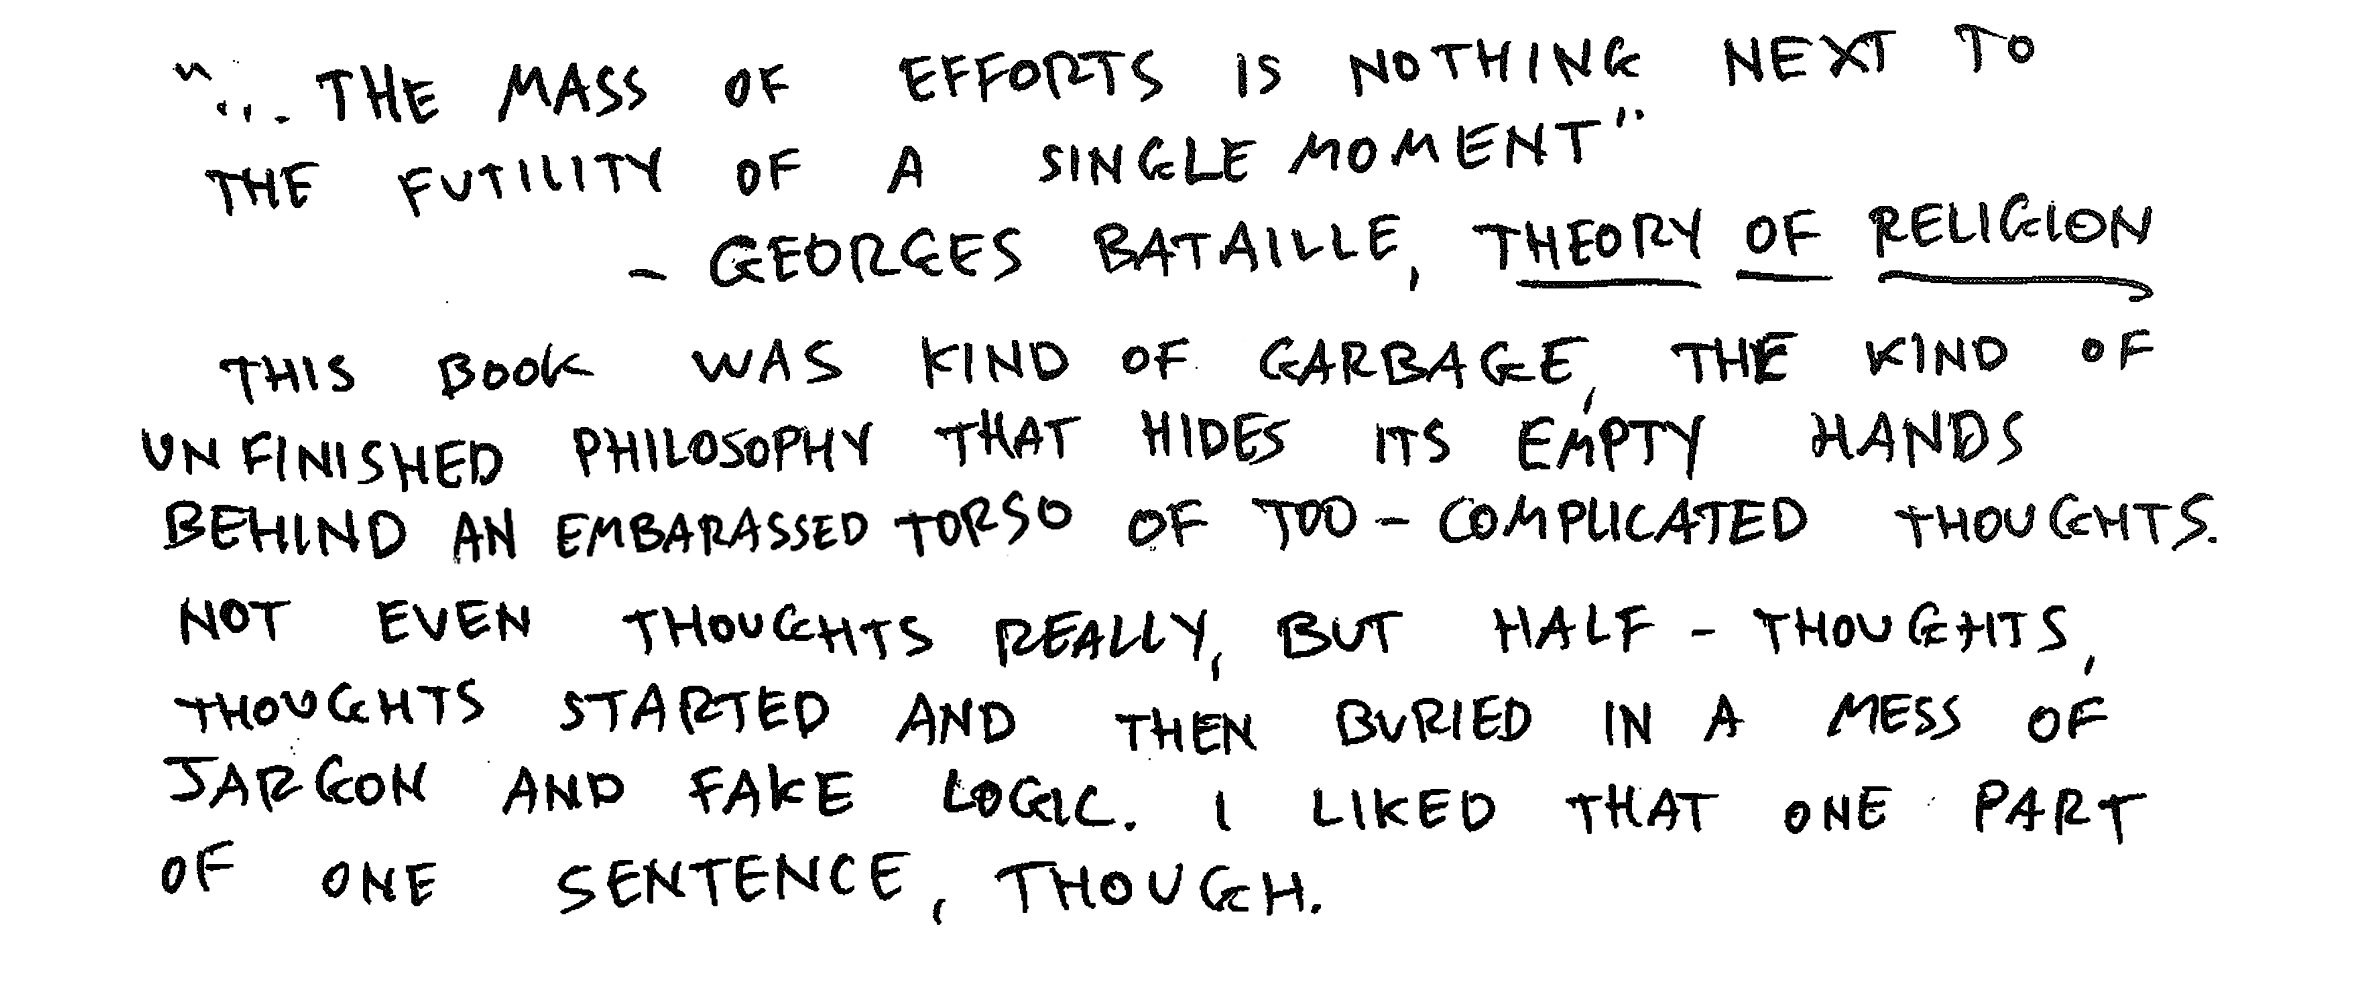 "... THE MASS OF EFFORTS IS NOTHING NEXT TO
THE FUTILITY OF A SINGLE MOMENT"
- GEORGES BATAILLE, THEORY OF RELIGION
THIS BOOK WAS KIND OF GARBAGE, THE KIND OF
UNFINISHED PHILOSOPHY THAT HIDES ITS EMPTY HANDS
BEHIND AN EMBARASSED TORSO OF TOO-COMPLICATED THOUGHTS.
NOT EVEN THOUGHTS REALLY, BUT HALF-THOUGHTS,
THOUGHTS STARTED AND THEN BURIED IN A MESS OF
JARGON AND FAKE LOGIC. I LIKED THAT ONE PART
OF ONE SENTENCE, THOUGH.